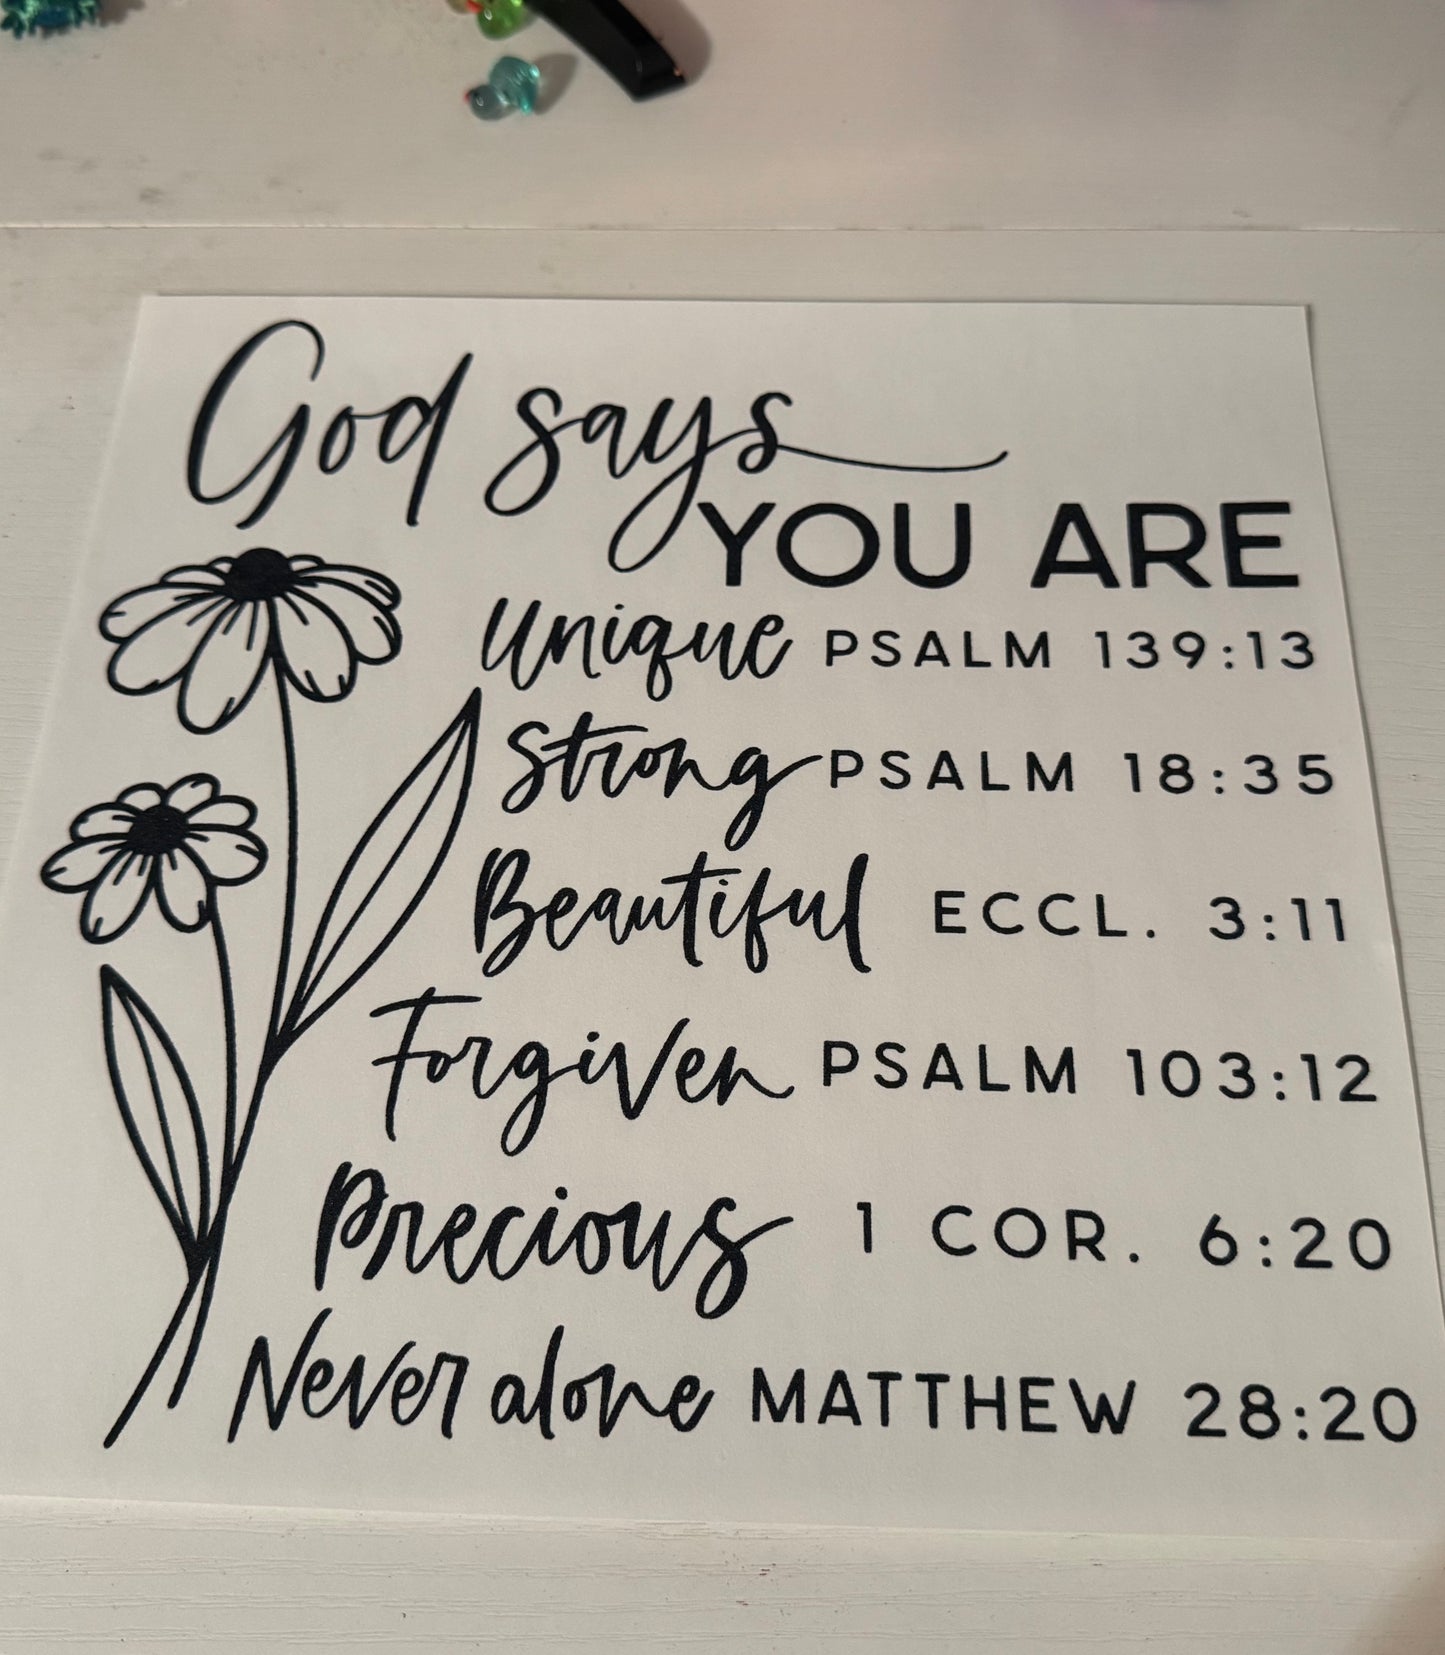 God says
YOU ARE
Unique PSALM 139:13
Strong PSALM 18:35
Beautiful ECCL. 3:11
Forgiven PSALM 103:12
Precious 1 COR. 6:20
Never alone MATTHEW 28:20